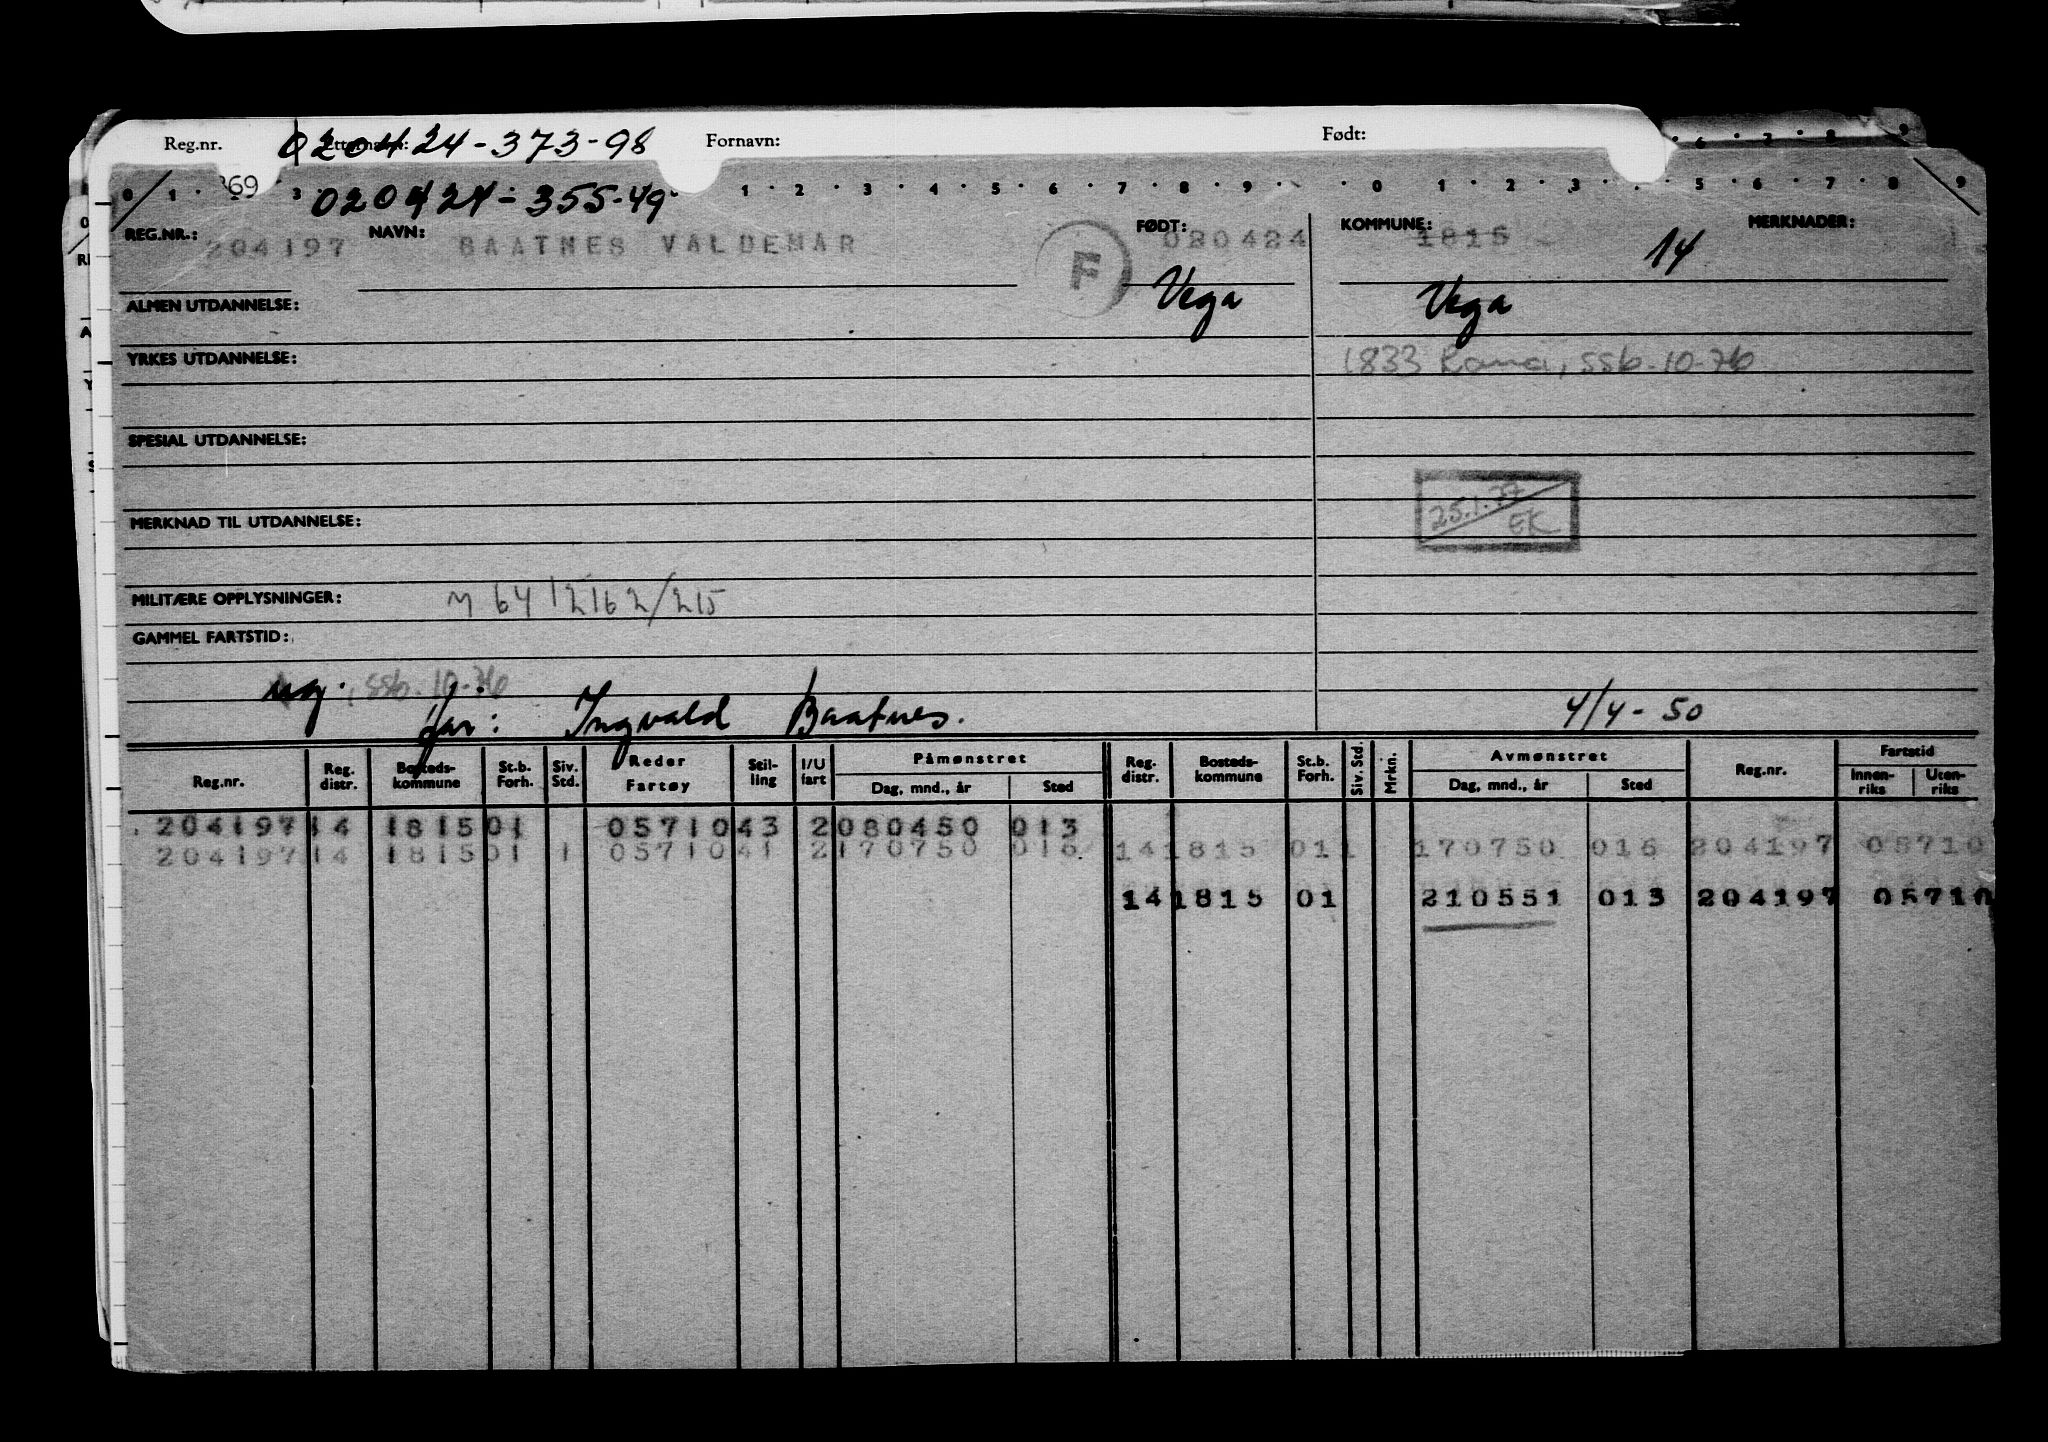 Reg.nr. Etternavn: Fornavn: Født:
020424-373-98
020424-355-49
REG.NR.: 204197 NAVN: BAATNES VALDEMAR F FØDT: 020424 KOMMUNE: 1815 MERKNADER:
14
Vega Vega
ALMEN UTDANNELSE:
YRKES UTDANNELSE: 1833 Rana, ssb. 10-76
SPESIAL UTDANNELSE:
25.1.77
EK
MERKNAD TIL UTDANNELSE:
MILITÆRE OPPLYSNINGER: M 64 12162/215
GAMMEL FARTSTID:
ug., ssb. 10-76
far: Ingvald Baatnes. 4/4-50
Reg.nr. Reg. distr. Bosteds-kommune St.b. Forh. Siv. Std. Reder Fartøy Stil-ling I/U fart Påmønstret Dag, mnd., år Sted Reg. distr. Bosteds-kommune St.b. Forh. Siv. Std. Mrkn. Avmønstret Dag, mnd., år Sted Reg.nr. Fartstid Innen-riks Uten-riks
204197 14 1815 01 05710 43 2 080450 013
204197 14 1815 01 1 05710 41 2 170750 016 14 1815 01 1 170750 016 204197 05710
14 1815 01 210551 013 204197 05710